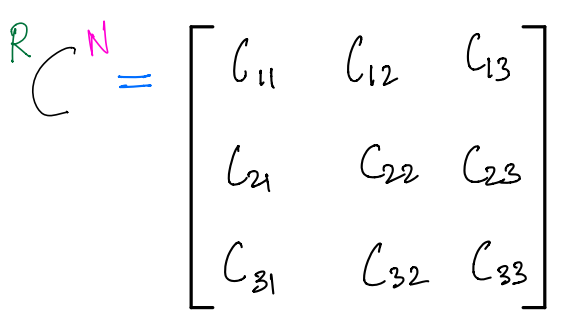 R C N = C11 C12 C13
C21 C22 C23
C31 C32 C33